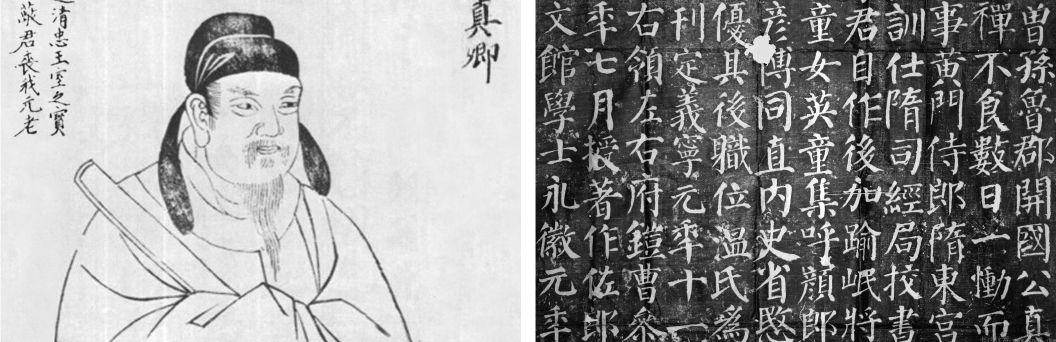 真卿
清忠王室之寶
君喪我元老
曾孫魯郡開國公真
禪不食數日一慟而
事黃門侍郎隋東宮
訓仕隋司經局挍書
君自作後加踰岷將
童女英童集呼顏郎
彥博同直內史省愍
優其後職位溫氏為
刊定義寧元年十一
右領左右府鎧曹參
年七月授著作佐郎
文館學士永徽元年